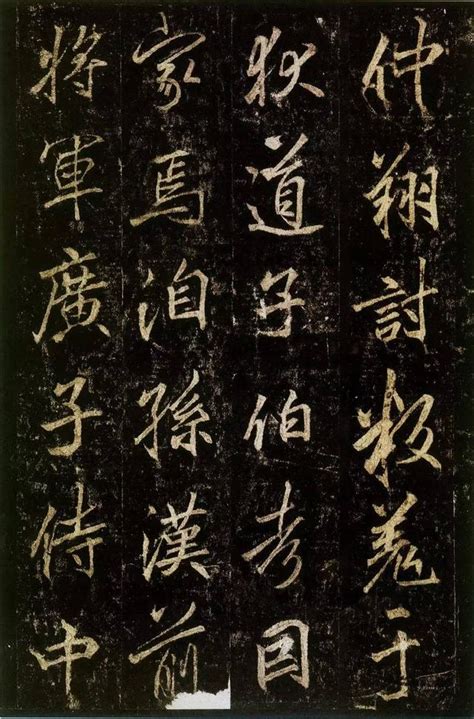 仲翔討叛羌于
狄道子伯考因
家焉洎孫漢前
將軍廣子侍中